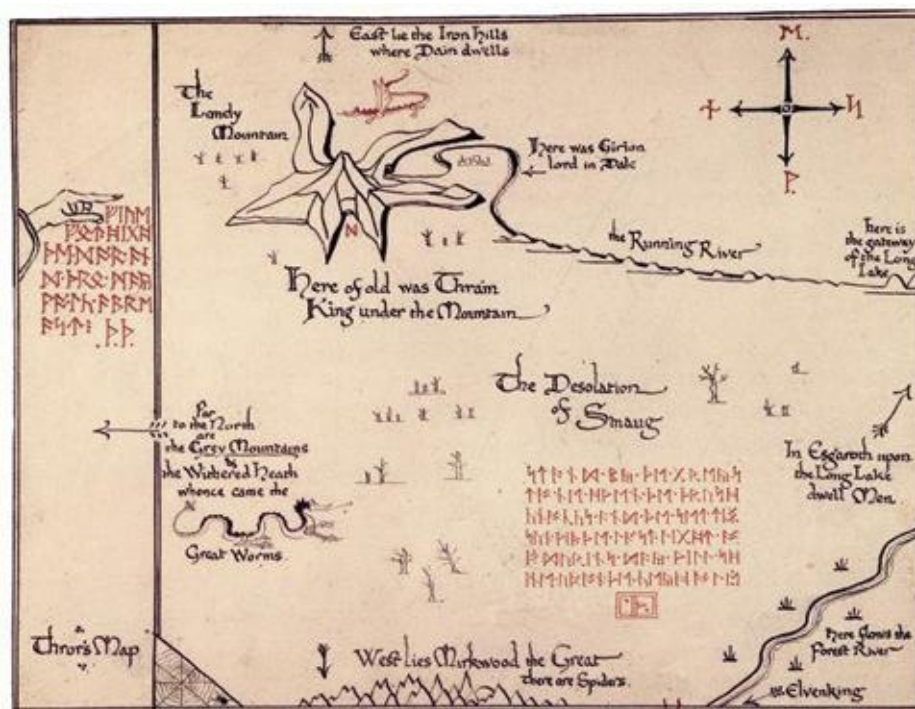 East lie the Iron Hills
where Dain dwells
ᛖ.
ᚾ
ᛋ
ᚹ.
The
Lonely
Mountain
Here was Girion
lord in Dale
the Running River
here is
the gateway
of the Long
Lake
ᚠᛁᚢᛖ
ᚠᛟᛏ᛫ᚻᛁᚷᚻ
ᚦᛖ᛫ᛞᚩᚱ᛫ᚪᚾ
ᛞ᛫ᚦᚱᛟ᛫ᛗᚪᚣ
ᚹᚪᛚᚳ᛫ᚪᛒᚱᛖ
ᚪᛋᛏ᛬ ᚦ᛫ᚦ᛫
Here of old was Thrain
King under the Mountain
The Desolation
of Smaug
Far
to the North
are
the Grey Mountains
&
the Withered Heath
whence came the
Great Worms
In Esgaroth upon
the Long Lake
dwell Men
Thror's Map
West lies Mirkwood the Great
there are Spiders.
here flows the
Forest River
Elvenking